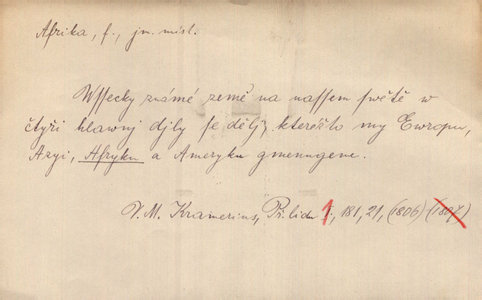 Afrika, f., jm. míst.
Wssecky známé země na nassem swětě w
čtyři hlawnj djly se dělj, kterěžto my Ewropu,
Azyi, Afryku a Ameryku gmenugeme.
V. M. Kramerius, Př. lidu 1, 181, 21, (1806) (1807)